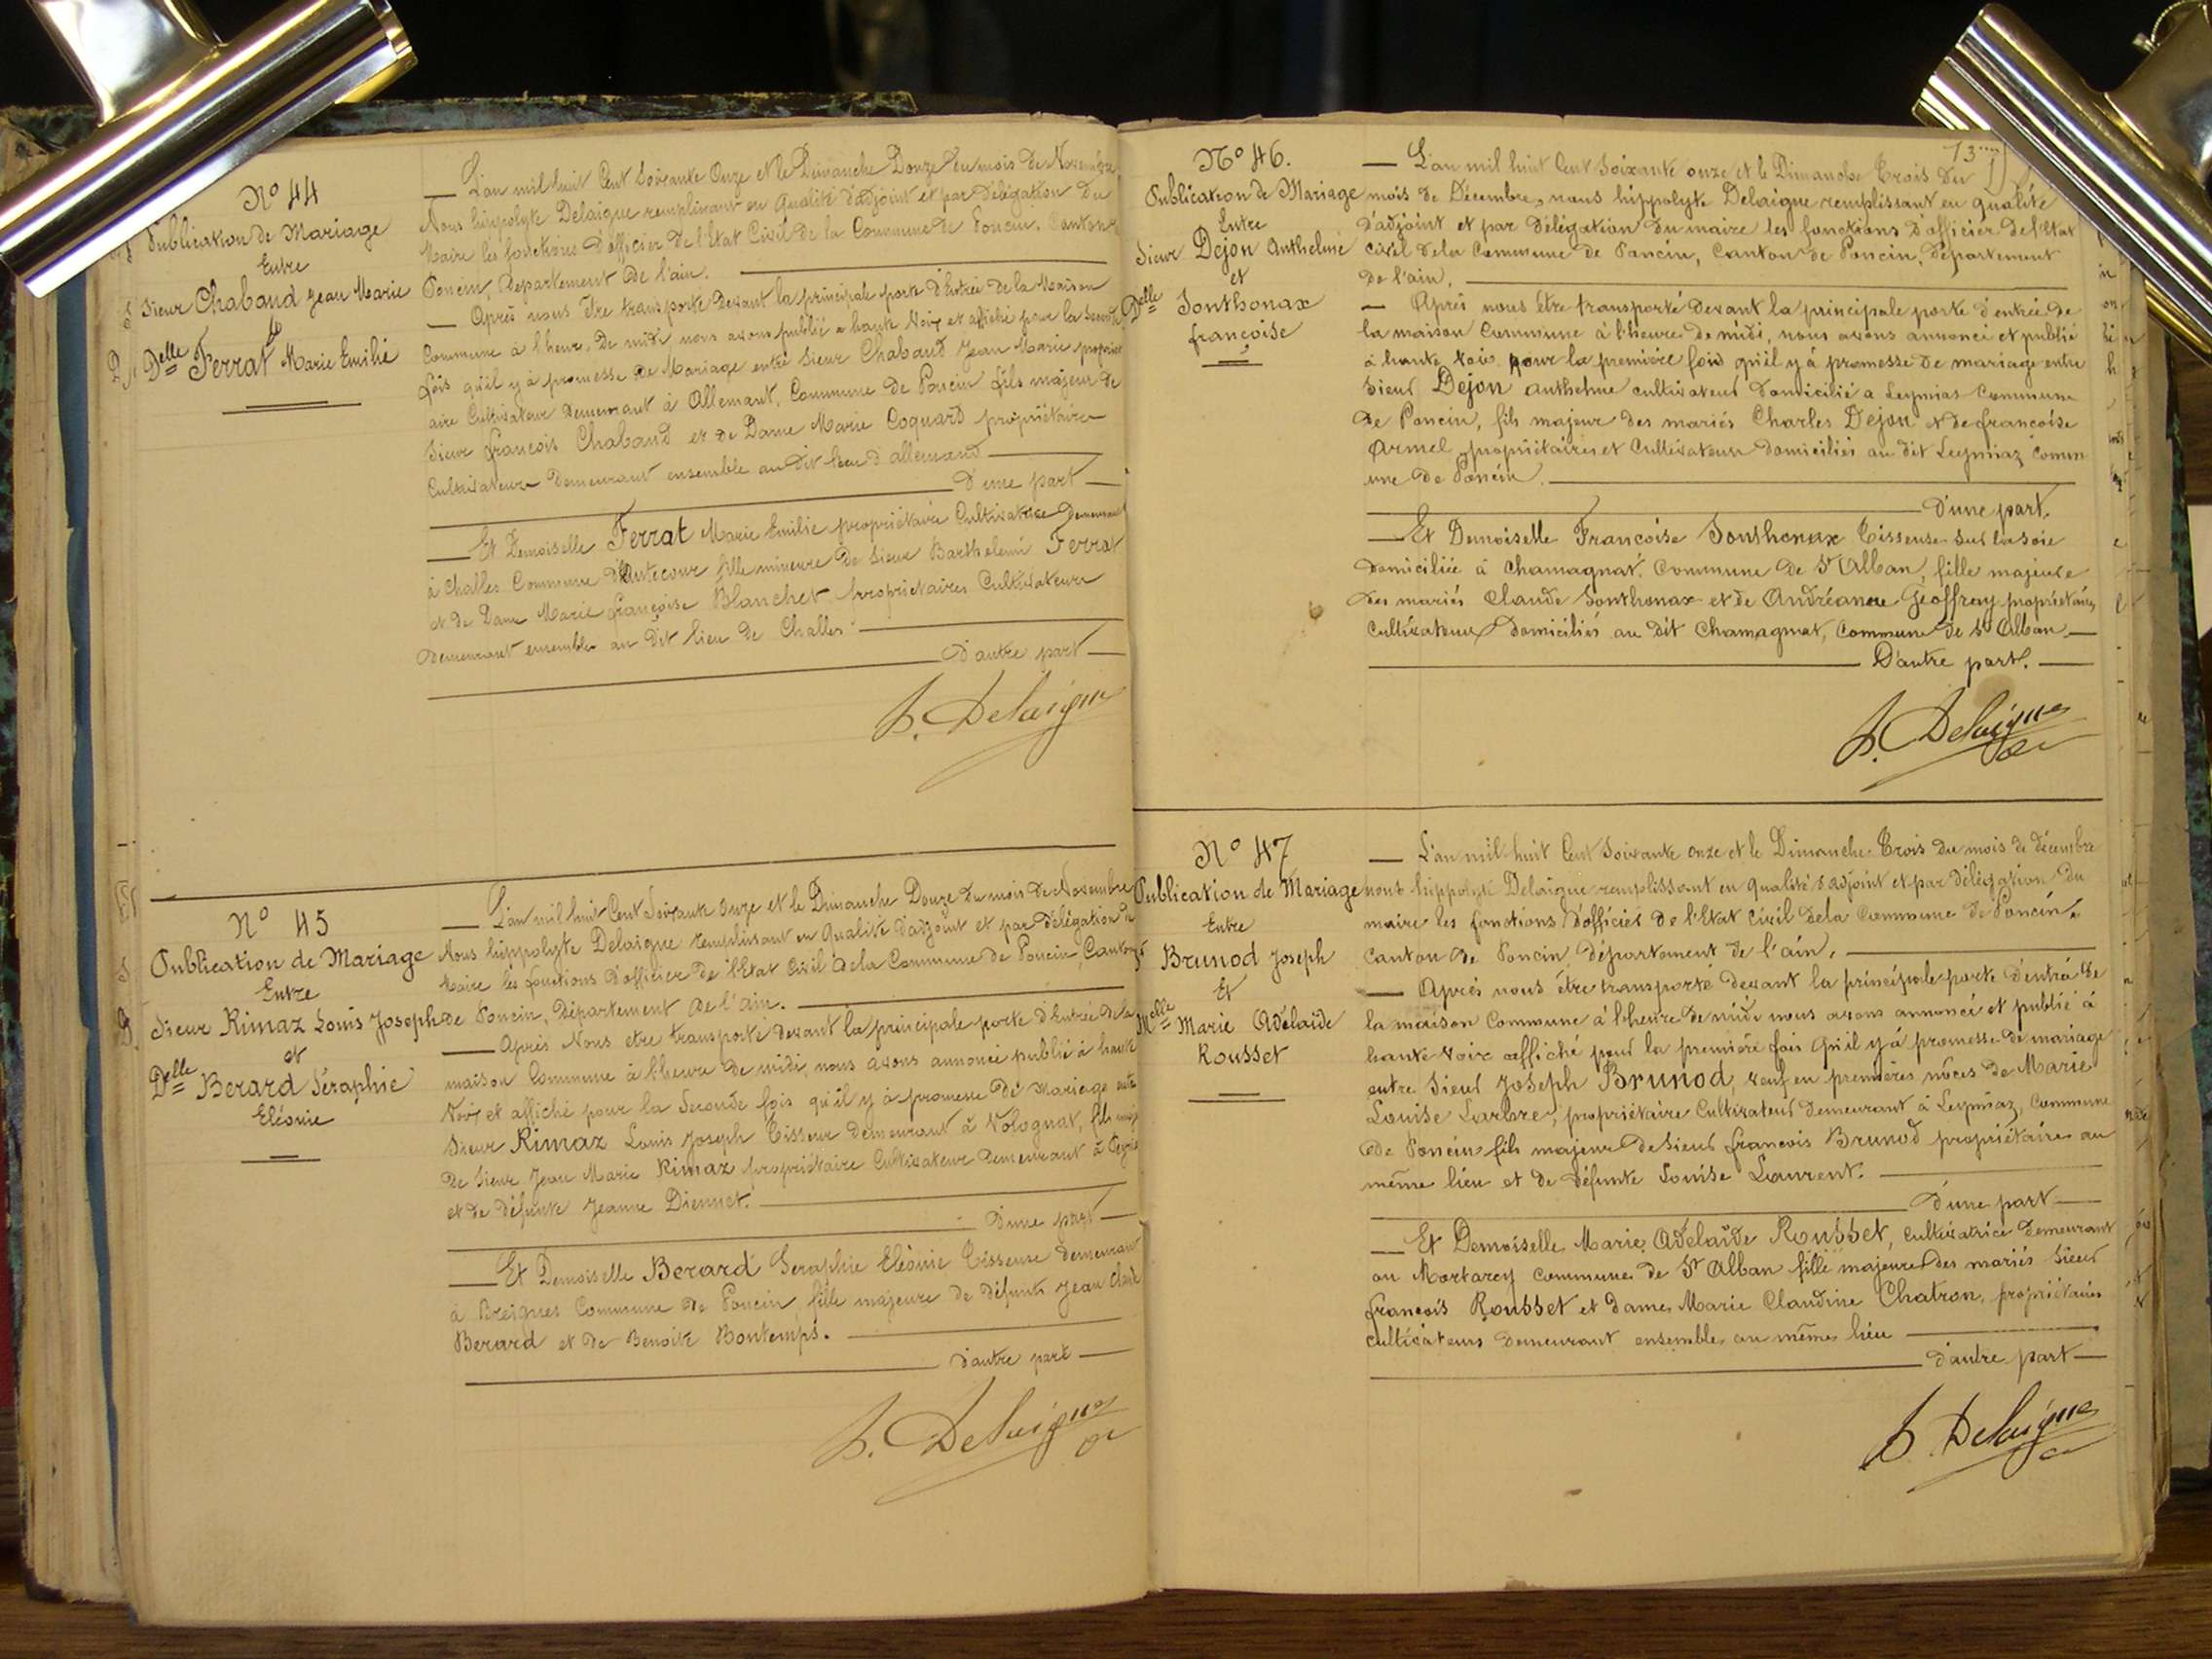 No 44
Publication de Mariage
Entre
Sieur Chaband Jean Marie
et
Delle Ferrat Marie Emilie
— L'an mil huit Cent Soixante Onze et le Dimanche Douze du mois de Novembre
Nous hippolyte Delaigue remplissant en qualité d'adjoint et par délégation du
Maire les fonctions d'officier de l'Etat Civil de la Commune de Poncin, Canton de
Poncin, Département de l'ain.
— Après nous être transporté devant la principale porte d'Entrée de la Maison
Commune à l'heure de midi nous avons publié a haute Voix et affiché pour la Seconde
fois qu'il y à promesse de Mariage entre Sieur Chaband Jean Marie propriét
aire Cultivateur demeurant à Allemant, Commune de Poncin fils majeur de
Sieur françois Chaband et de Dame Marie Coquard propriétaire
Cultivateur demeurant ensemble au dit lieu d'allemand
D'une part —
— Et Demoiselle Ferrat Marie Emilie propriétaire Cultivatrice demeurant
à Challes Commune d'Hautecour fille mineure de Sieur Barthelemi Ferrat
et de Dame Marie françoise Blanchet propriétaires Cultivateurs
demeurant ensemble au dit lieu de Challes
D'autre part —
h. Delaigue
No 45
Publication de Mariage
Entre
Sieur Rimaz Louis Joseph
et
Delle Berard Séraphie
Eléonie
— L'an mil huit Cent Soixante Onze et le Dimanche Douze du mois de Novembre
Nous hippolyte Delaigue remplissant en Qualité d'adjoint et par délégation du
Maire les fonctions d'officier de l'Etat Civil de la Commune de Poncin, Canton
de Poncin, Département de l'ain.
— Après Nous etre transporté devant la principale porte d'Entrée de la
maison Commune à l'heure de midi, nous avons annoncé publié à haute
Voix et affiché pour la Seconde fois qu'il y à promesse de Mariage entre
Sieur Rimaz Louis Joseph Tisseur demeurant à Volognat, fils maj
de Sieur Jean Marie Rimaz propriétaire Cultivateur demeurant à
et de défunte Jeanne Diennet.
D'une part —
— Et Demoiselle Berard Seraphie Eléonie Tisseuse demeurant
à Breignes Commune de Poncin, fille majeure de défunts Jean Claude
Berard et de Benoite Bontemps.
d'autre part —
h. Delaigue
13
No 46.
Publication de Mariage
Entre
Sieur Dejon Anthelme
et
Delle Sonthonax
françoise
— L'an mil huit Cent Soixante onze et le Dimanche Trois du
mois de Décembre, nous hippolyte Delaigue remplissant en qualité
d'adjoint et par délégation du maire les fonctions d'officier de l'Etat
civil de la Commune de Poncin, Canton de Poncin, Département
de l'ain.
— Après nous être transporté devant la principale porte d'entrée de
la maison Commune à l'heure de midi, nous avons annoncé et publié
à haute voix pour la première fois qu'il y à promesse de mariage entre
Sieur Dejon anthelme cultivateur domicilié a Leymiaz Commune
de Poncin, fils majeur des mariés Charles Dejon et de françoise
Armel propriétaires et Cultivateurs domiciliés au dit Leymiaz comm
une de Poncin.
D'une part.
— Et Demoiselle Françoise Sonthonax Tisseuse sur la soie
domiciliée à Chamagnat, Commune de St Alban, fille majeure
des mariés Claude Sonthonax et de Andréanne Geoffray propriétaires
Cultivateurs domiciliés au dit Chamagnat, Commune de St Alban —
D'autre part. —
h. Delaigue
No 47
Publication de Mariage
Entre
Brunod Joseph
Et
Melle Marie Adélaïde
Rousset
— L'an mil huit Cent Soixante onze et le Dimanche Trois du mois de décembre
nous hippolyte Delaigue remplissant en qualité d'adjoint et par délégation du
maire les fonctions d'officier de l'Etat civil de la Commune de Poncin.
Canton de Poncin, département de l'ain.
— Après nous être transporté devant la principale porte d'entrée de
la maison Commune à l'heure de midi nous avons annoncé et publié à
haute voix affiché pour la première fois qu'il y à promesse de mariage
entre Sieur Joseph Brunod, veuf en premières nôces de Marie
Louise Larbre, propriétaire Cultivateur demeurant à Leymiaz, Commune
de Poncin fils majeur de Sieur françois Brunod propriétaire au
même lieu et de défunte Louise Laurent.
d'une part —
— Et Demoiselle Marie Adelaïde Rousset, Cultivatrice demeurant
au Mortarey commune de St Alban fille majeure des mariés Sieur
françois Rousset et dame Marie Claudine Chatron, propriétaires
cultivateurs demeurant ensemble au même lieu
d'autre part —
h. Delaigue